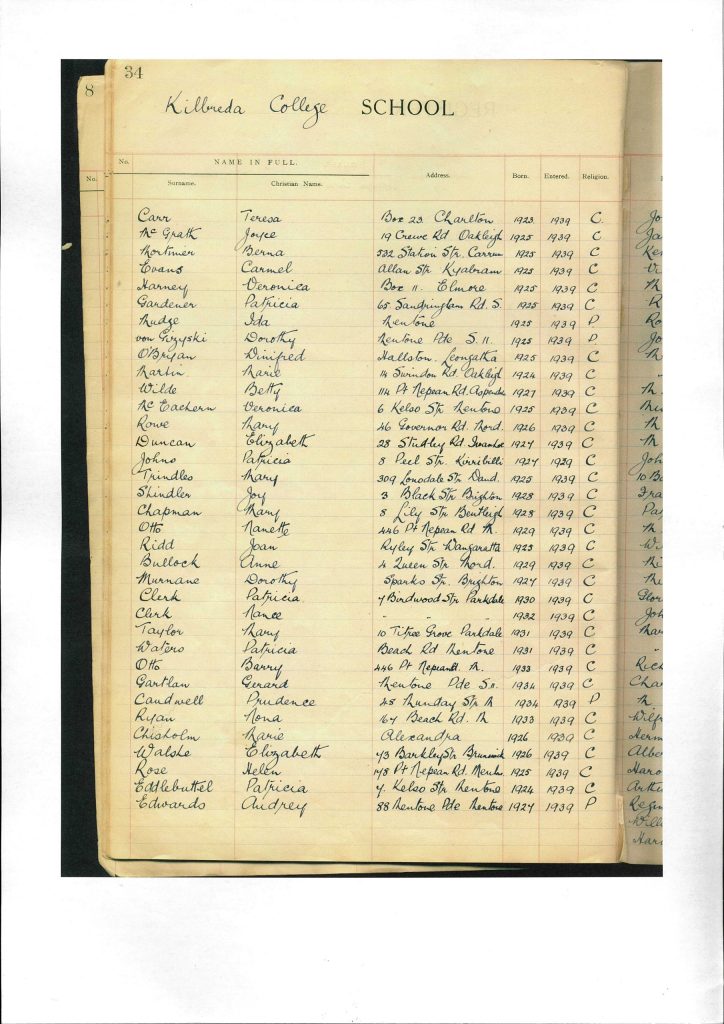 34
8
Kilbreda College SCHOOL
No. NAME IN FULL. Address. Born. Entered. Religion.
No. Surname. Christian Name.
Carr Teresa Box 23 Charlton 1923 1939 C. Jo
Mc Grath Joyce 19 Crewe Rd Oakleigh 1925 1939 C Ja
Mortimer Berna 532 Station Str. Carrum 1925 1939 C Ke
Evans Carmel Allan Str Kyabram 1925 1939 C
Harney Veronica Box 11. Elmore 1925 1939 C M
Gardener Patricia 65 Sandringham Rd. S. 1925 1939 C R
Mudge Ida Mentone 1925 1939 P Ro
von Gizyski Dorothy Mentone Pde S. 11. 1925 1939 P. Jo
O'Bryan Winifred Hallston. Leongatha 1925 1939 C M
Martin Marie 14 Swindon Rd. Oakleigh 1924 1939 C "
Wilde Betty 114 Pt Nepean Rd. Aspendale 1927 1939 C M.
Mc Eachern Veronica 6 Kelso Str Mentone 1925 1939 C
Rowe Mary 46 Governor Rd. Mord. 1926 1939 C M
Duncan Elizabeth 28 Studley Rd Ivanhoe 1927 1939 C M
Johns Patricia 8 Peel Str. Kirribilli 1927 1939 C Joh
Trindles Mary 309 Lonsdale Str Dand. 1925 1939 C 10 B
Shindler Joy 3 Black Str Brighton 1928 1939 C Fra
Chapman Mary 8 Lily Str Bentleigh 1928 1939 C Pa
Otto Nanette 446 Pt Nepean Rd M. 1929 1939 C M.
Ridd Joan Ryley Str Wangaratta 1923 1939 C Wi
Bullock Anne 4 Queen Str Mord. 1929 1939 C
Murnane Dorothy Sparks Str. Brighton 1927 1939 C
Clerk Patricia 7 Birdwood Str Parkdale 1930 1939 C
Clerk Nance " " " 1932 1939 C Joh
Taylor Mary 10 Titree Grove Parkdale 1931 1939 C Mar
Waters Patricia Beach Rd Mentone 1931 1939 C "
Otto Barry 446 Pt Nepean Rd. M. 1933 1939 C Rich
Gartlan Gerard Mentone Pde S11. 1934 1939 C Cha
Caudwell Prudence 45 Munday Str M 1934 1939 P M.
Ryan Nona 167 Beach Rd. M 1933 1939 C Wilf
Chisholm Marie Alexandra 1926 1939 C Herm
Walshe Elizabeth 73 Barkly Str Brunswick 1926 1939 C Albe
Rose Helen 178 Pt Nepean Rd. Mentone 1925 1939 C Haro
Edtlebuttel Patricia 7. Kelso Str Mentone 1924 1939 C Arth
Edwards Audrey 88 Mentone Pde Mentone 1927 1939 P Regin
Will
Har